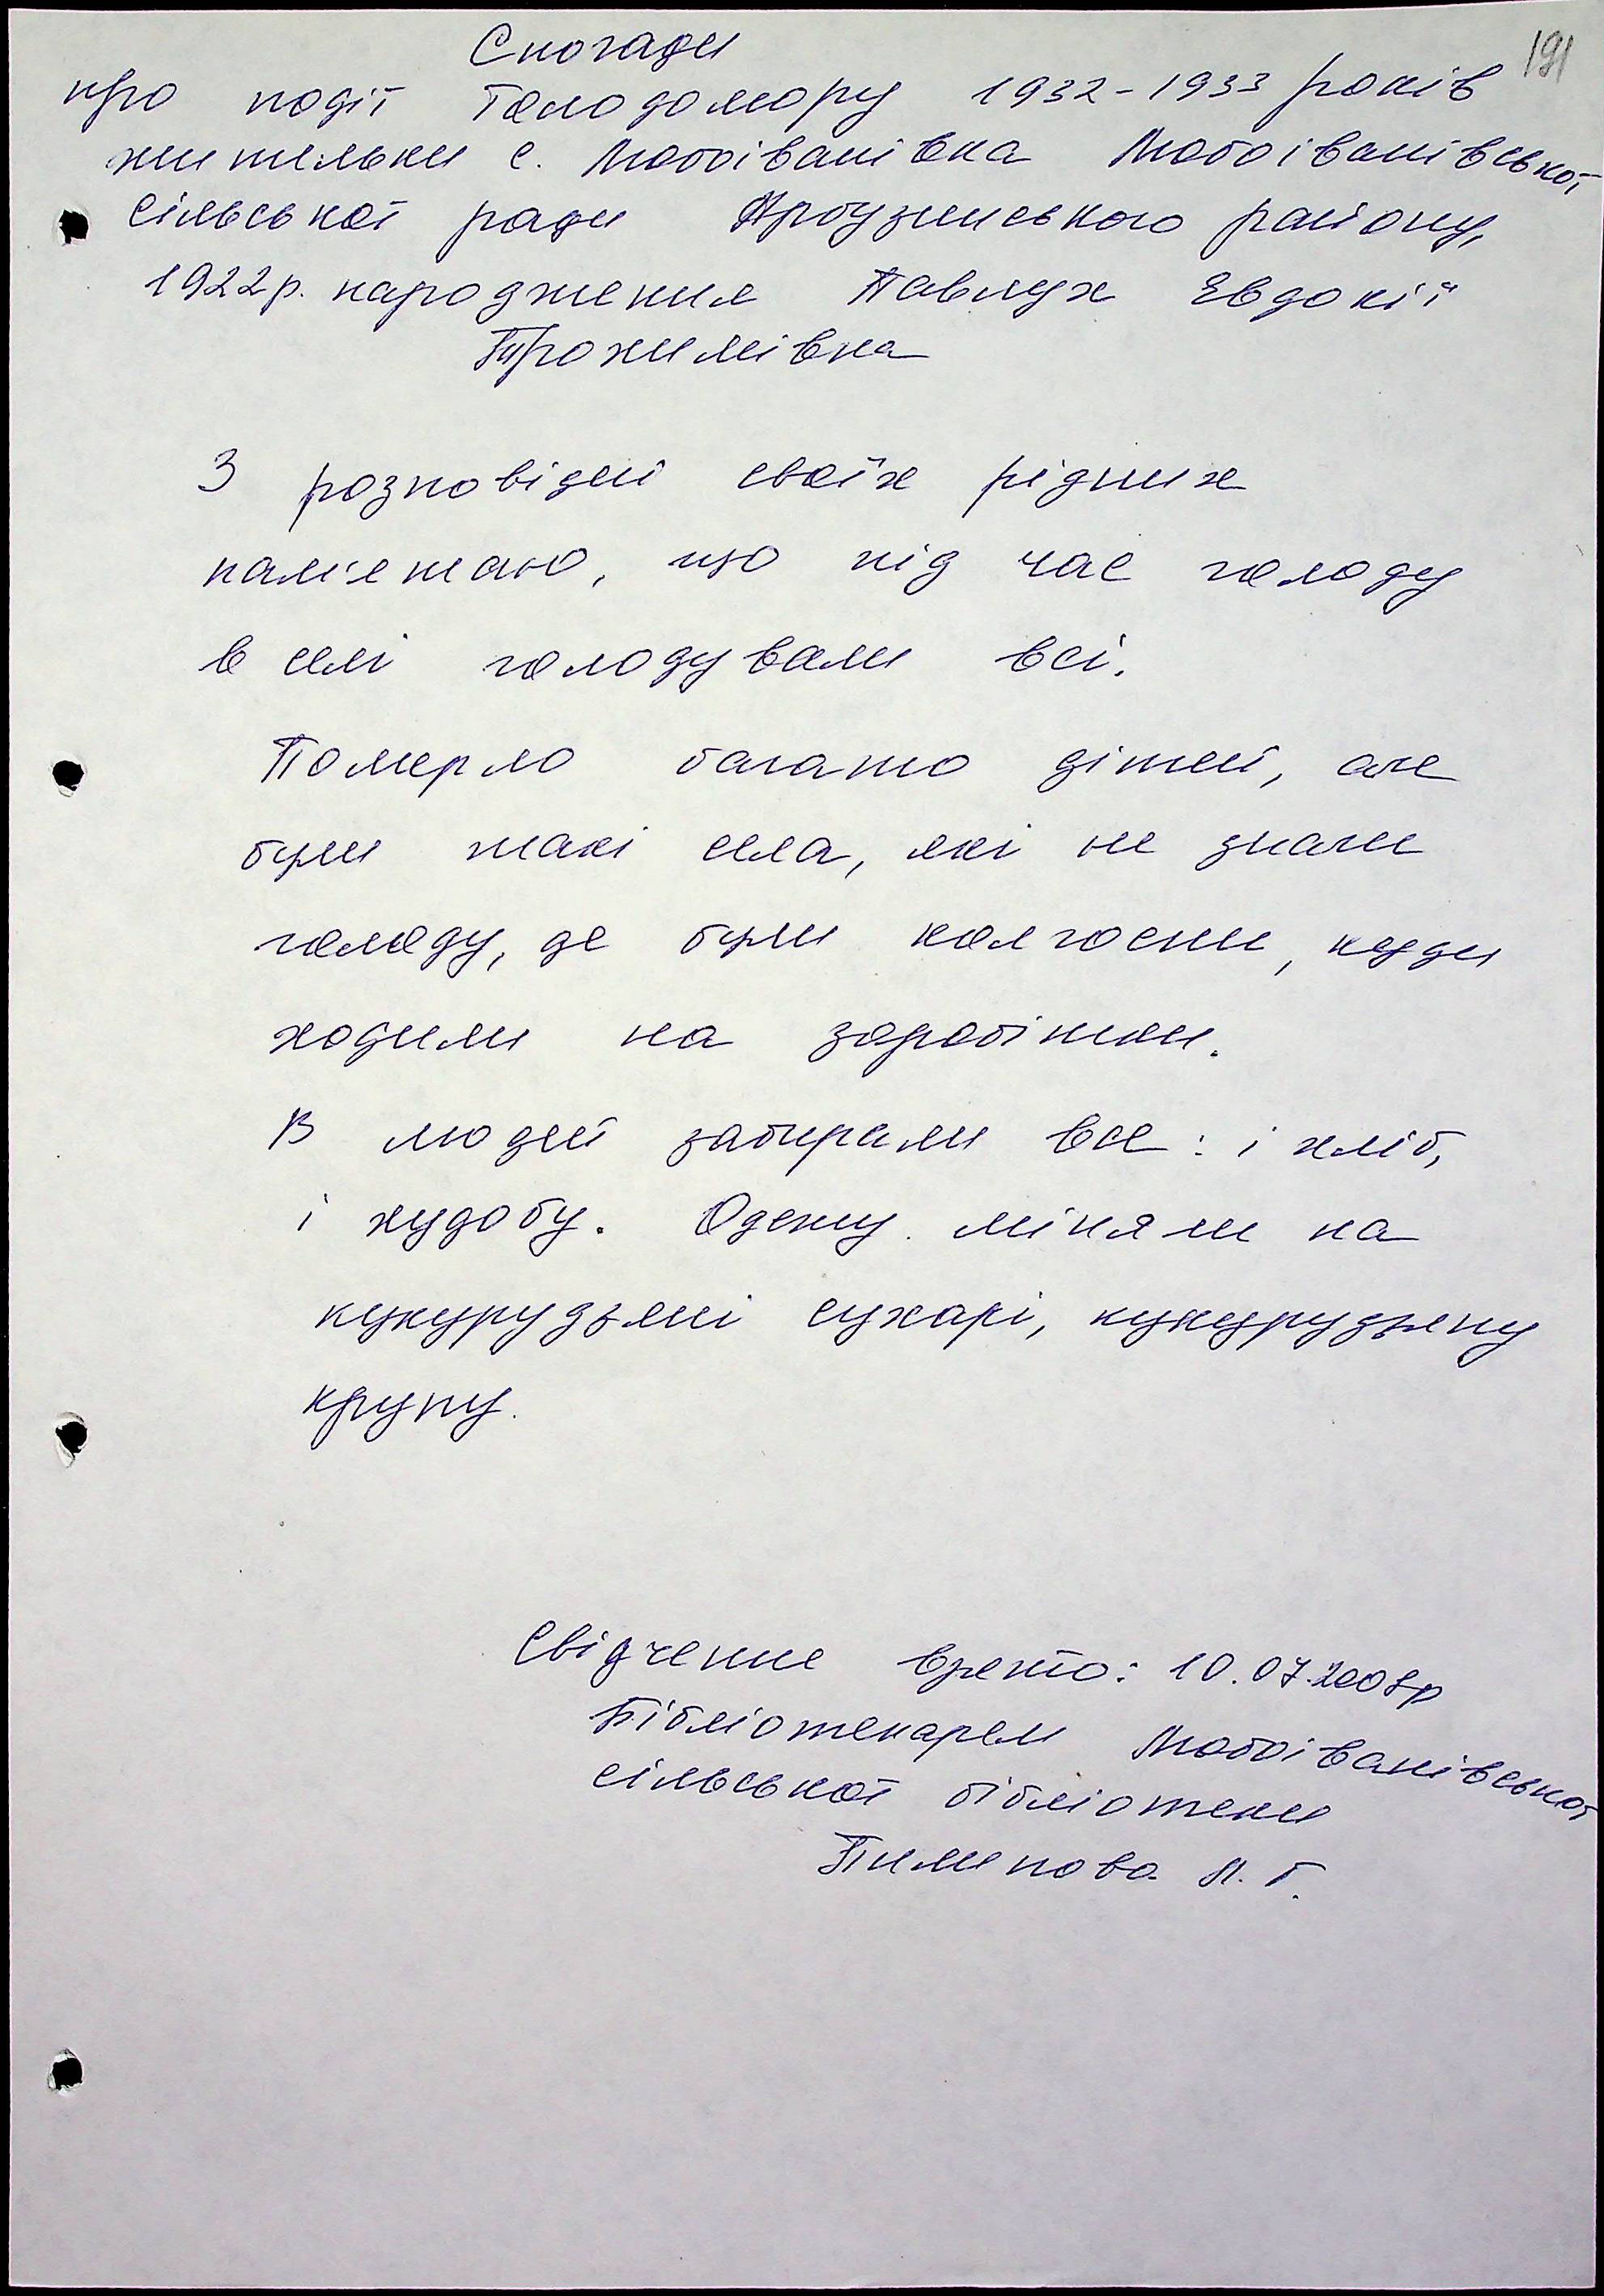 191
Спогади
про події Голодомору 1932-1933 років
жительки с. Любоіванівка Любоіванівської
сільської ради Арбузинського району,
1922р. народження Павлух Євдокії
Трохимівна
З розповідей своїх рідних
пам'ятаю, що під час голоду
в селі голодували всі.
Померло багато дітей, але
були такі села, які не знали
голоду, де були колгоспи, куди
ходили на заробітки.
В людей забирали все: і хліб,
і худобу. Одежу міняли на
кукурудзяні сухарі, кукурудзяну
крупу.
Свідчення взято: 10.07.2008р
Бібліотекарем Любоіванівської
сільської бібліотеки
Пилипова Л. Г.